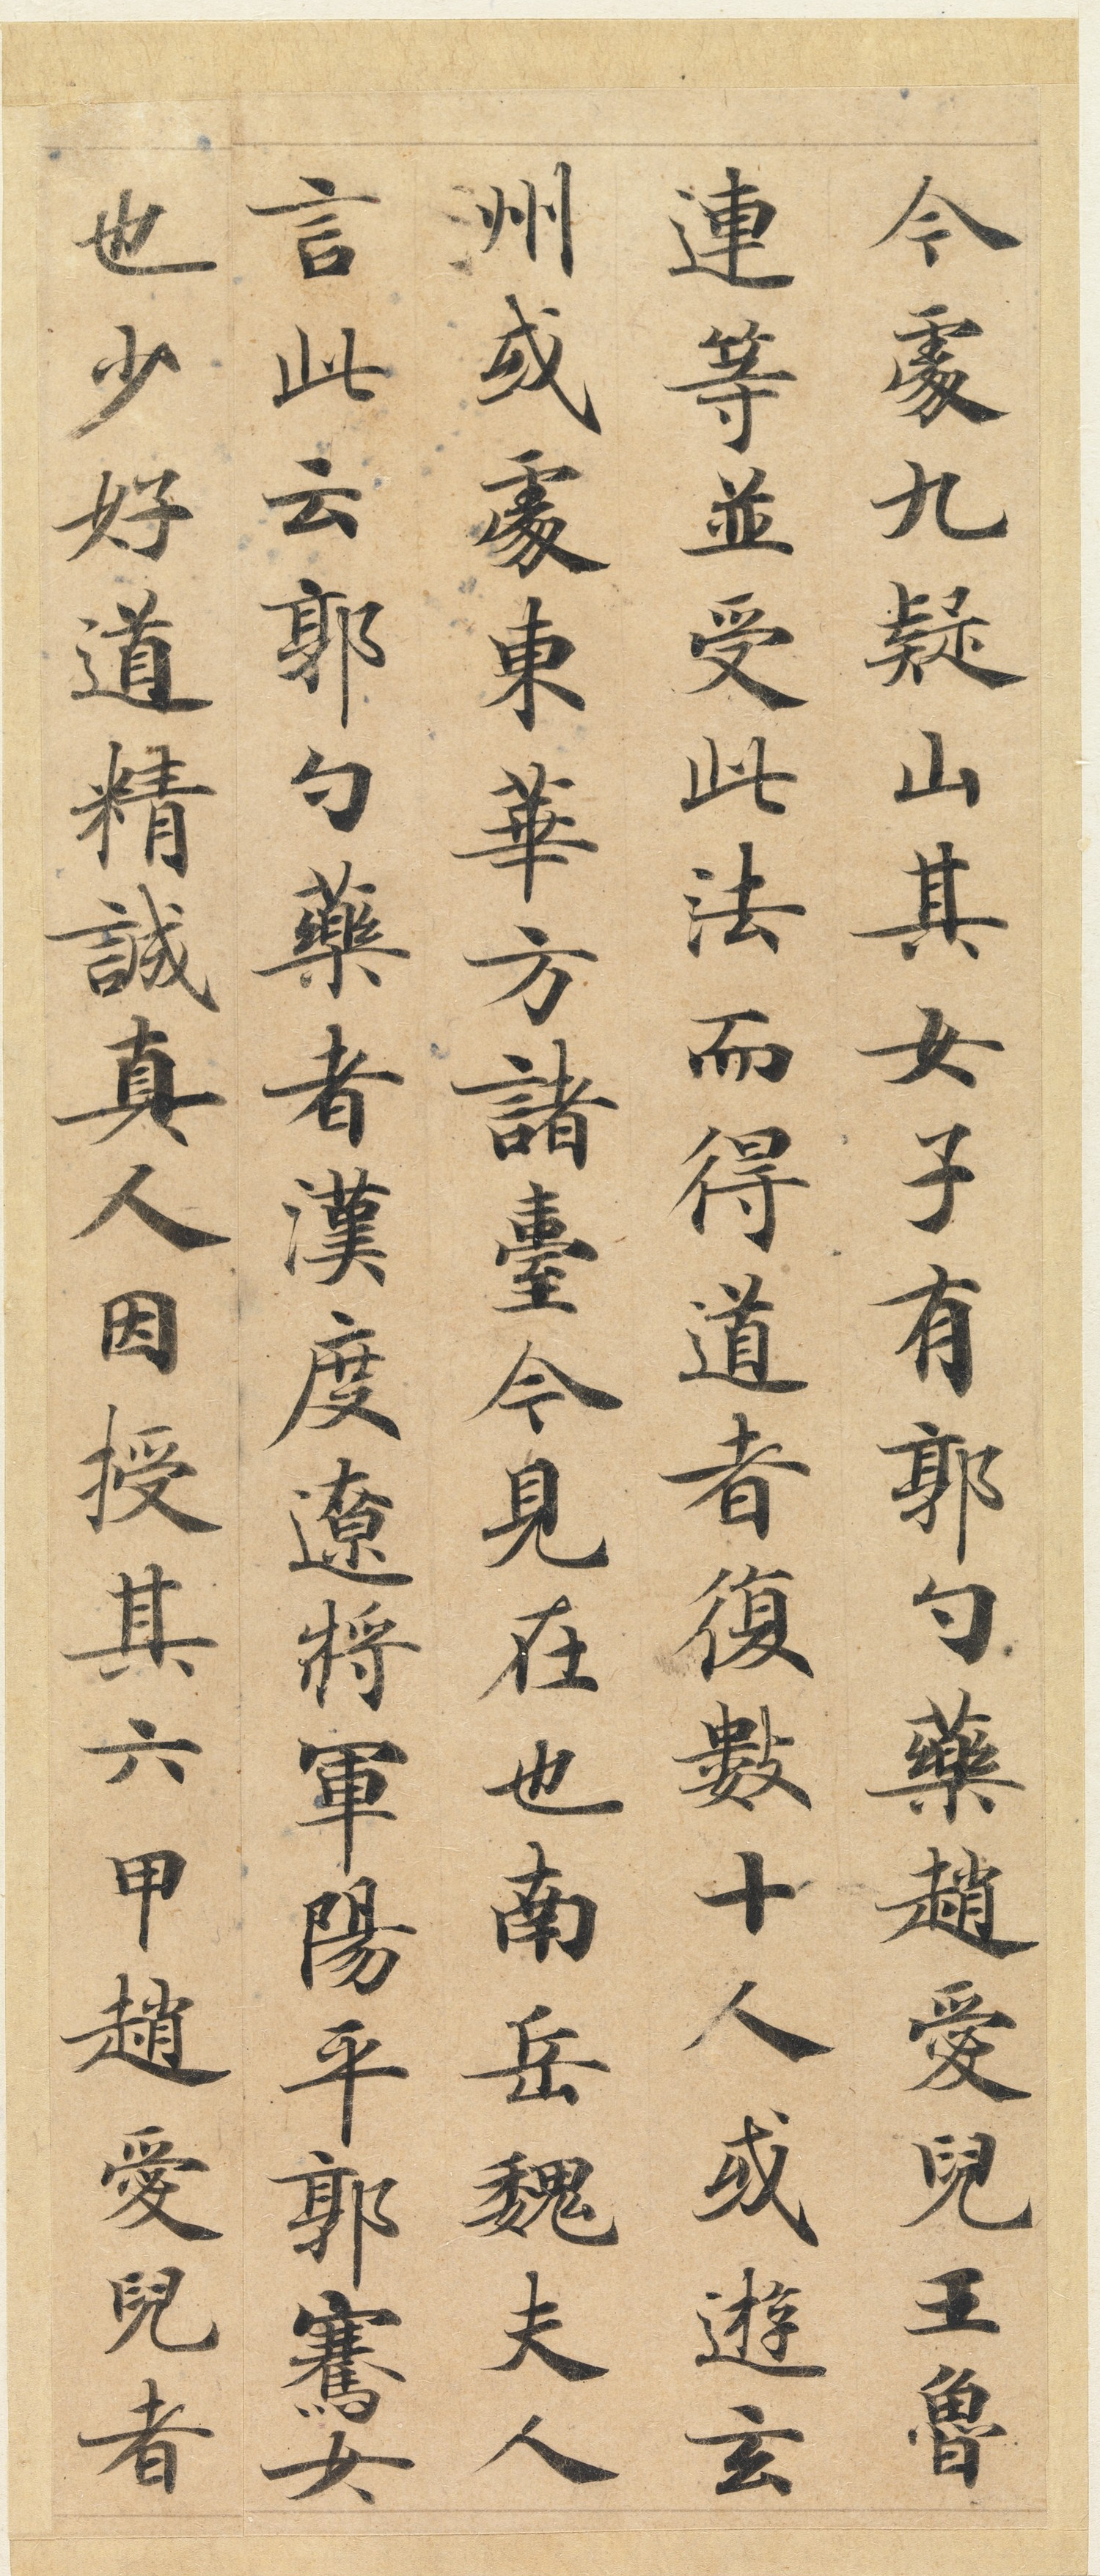 今處九疑山其女子有郭勺藥趙愛兒王魯
連等並受此法而得道者復數十人或遊玄
洲或處東華方諸臺今見在也南岳魏夫人
言此云郭勺藥者漢度遼將軍陽平郭騫女
也少好道精誠真人因授其六甲趙愛兒者